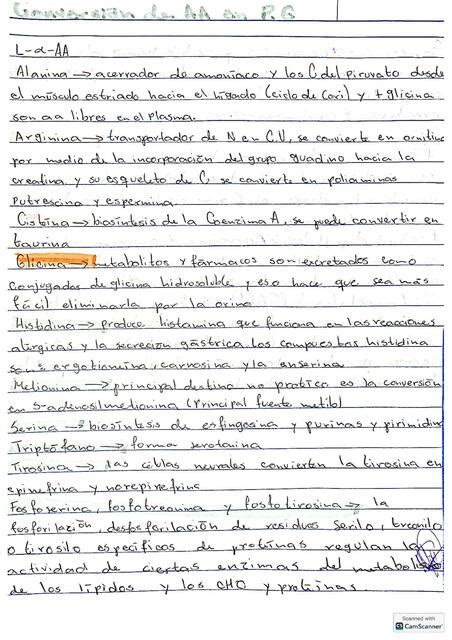 Conversión de AA en P.G
L-α-AA
Alanina → acerrador de amoníaco y los C del piruvato desde
el músculo estriado hacia el hígado (ciclo de Cori) y + glicina
son aa libres en el plasma.
Arginina → transportador de N en C.U, se convierte en ornitina
por medio de la incorporación del grupo guadino hacia la
creatina y su esqueleto de C, se convierte en poliaminas
Putrescina y espermina.
Cistina → biosíntesis de la Coenzima A, se puede convertir en
taurina
Glicina → metabolitos y fármacos son excretados como
conjugados de glicina hidrosoluble y eso hace que sea más
fácil eliminarla por la orina
Histidina → produce histamina que funciona en las reacciones
alérgicas y la secreción gástrica los compuestos histidina
son: ergotianeina, carnosina y la anserina
Metionina → principal destino no protico es la conversión
en S-adenosilmetionina (Principal fuente metilo)
Serina → biosíntesis de esfingosina y purinas y pirimidina
Triptófano → forma serotonina
Tirosina → las célblas neurales convierten la tirosina en
epinefrina y norepinefrina
Fosfoserina, fosfotreonina y fosfotirosina → la
fosforilazión, desfosforilación de residuos serilo, treonilo
o tirosilo específicos de protínas regulan la
actividad de ciertas enzimas del metabolismo
de los lípidos y los CHO y protínas.
Scanned with
CS CamScanner